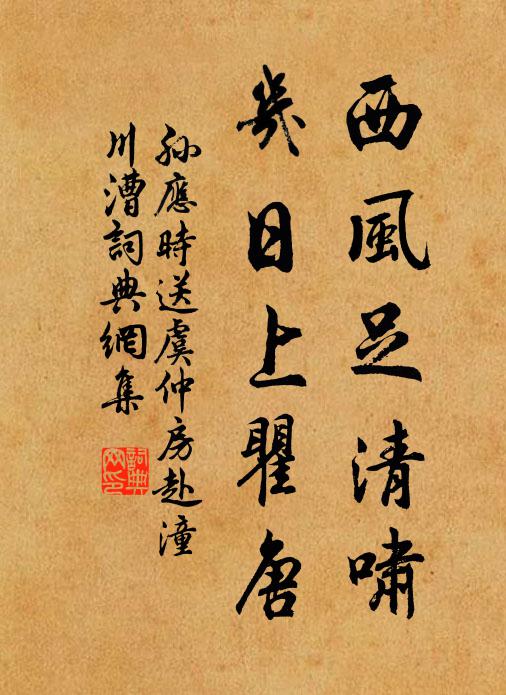 西風足清嘯
幾日上瞿唐
孫應時送虞仲房赴潼
川漕詞典網集
詞典
網印